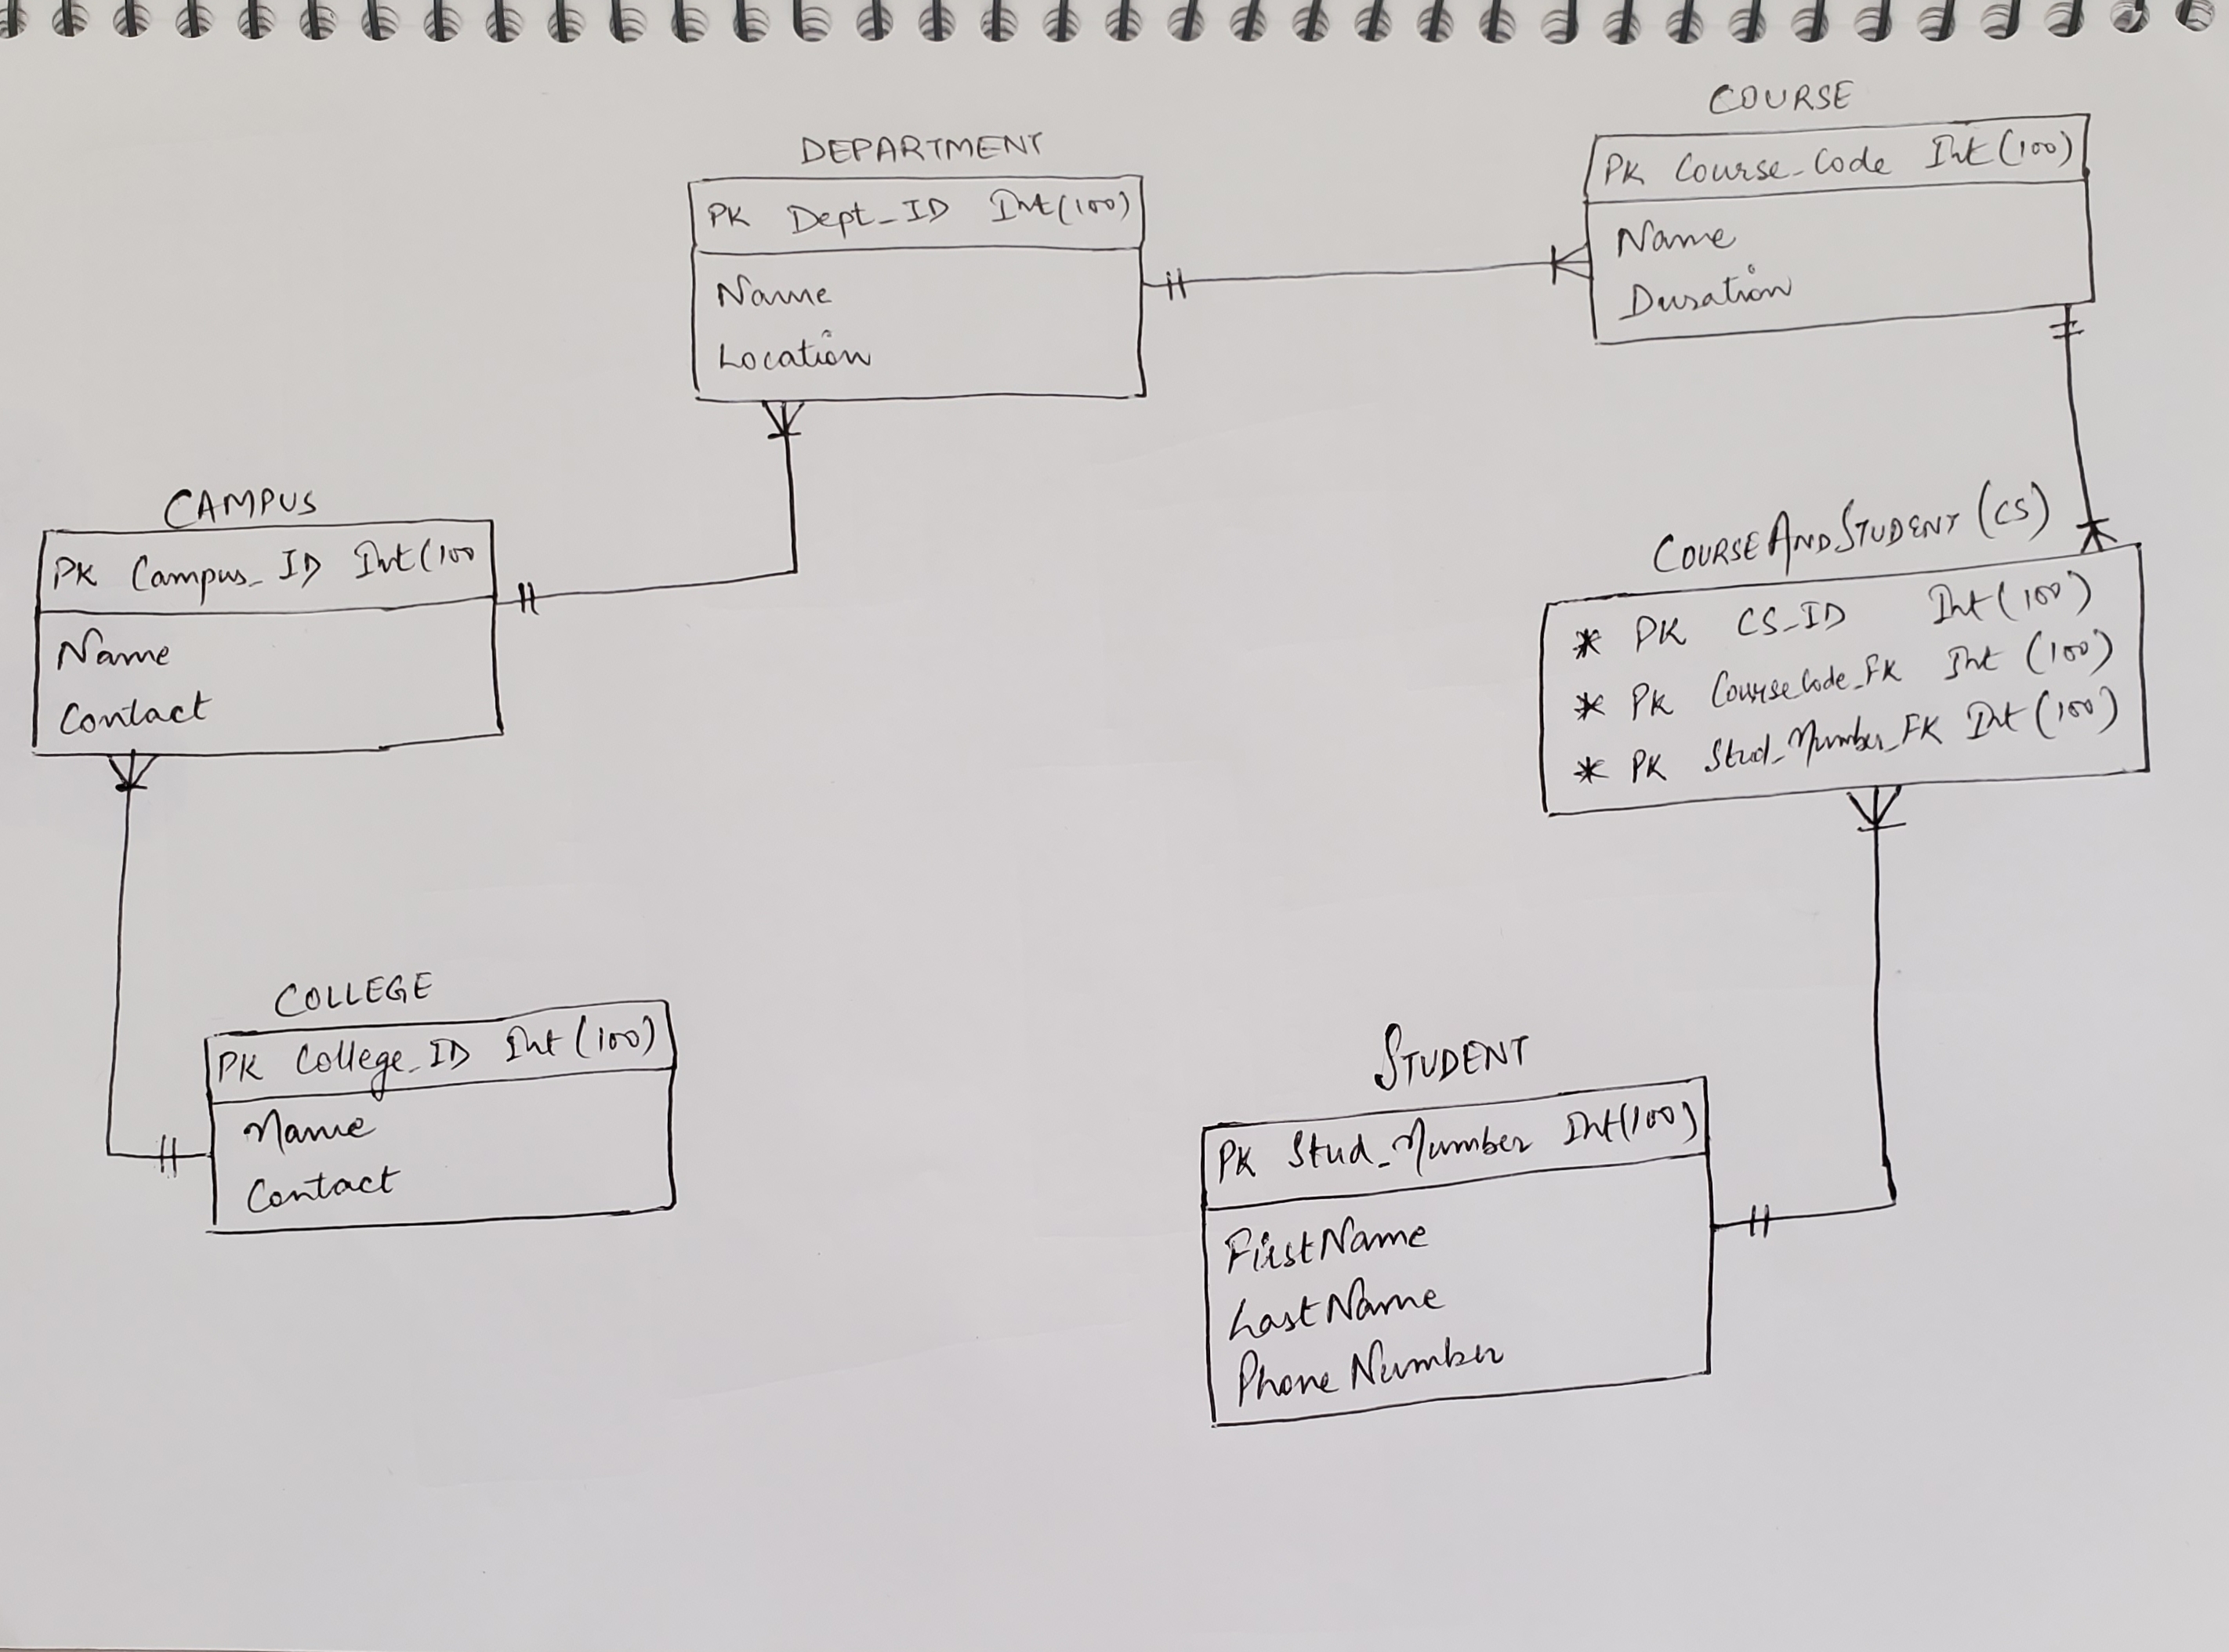 COURSE
PK Course_Code Int(100)
Name
Duration
DEPARTMENT
PK Dept_ID Int(100)
Name
Location
CAMPUS
PK Campus_ID Int(100
Name
Contact
COURSEANDSTUDENT (CS)
* PK CS_ID Int(100)
* PK CourseCode_FK Int (100)
* PK Stud_Number_FK Int(100)
COLLEGE
PK College_ID Int(100)
Name
Contact
STUDENT
PK Stud_Number Int(100)
FirstName
LastName
Phone Number